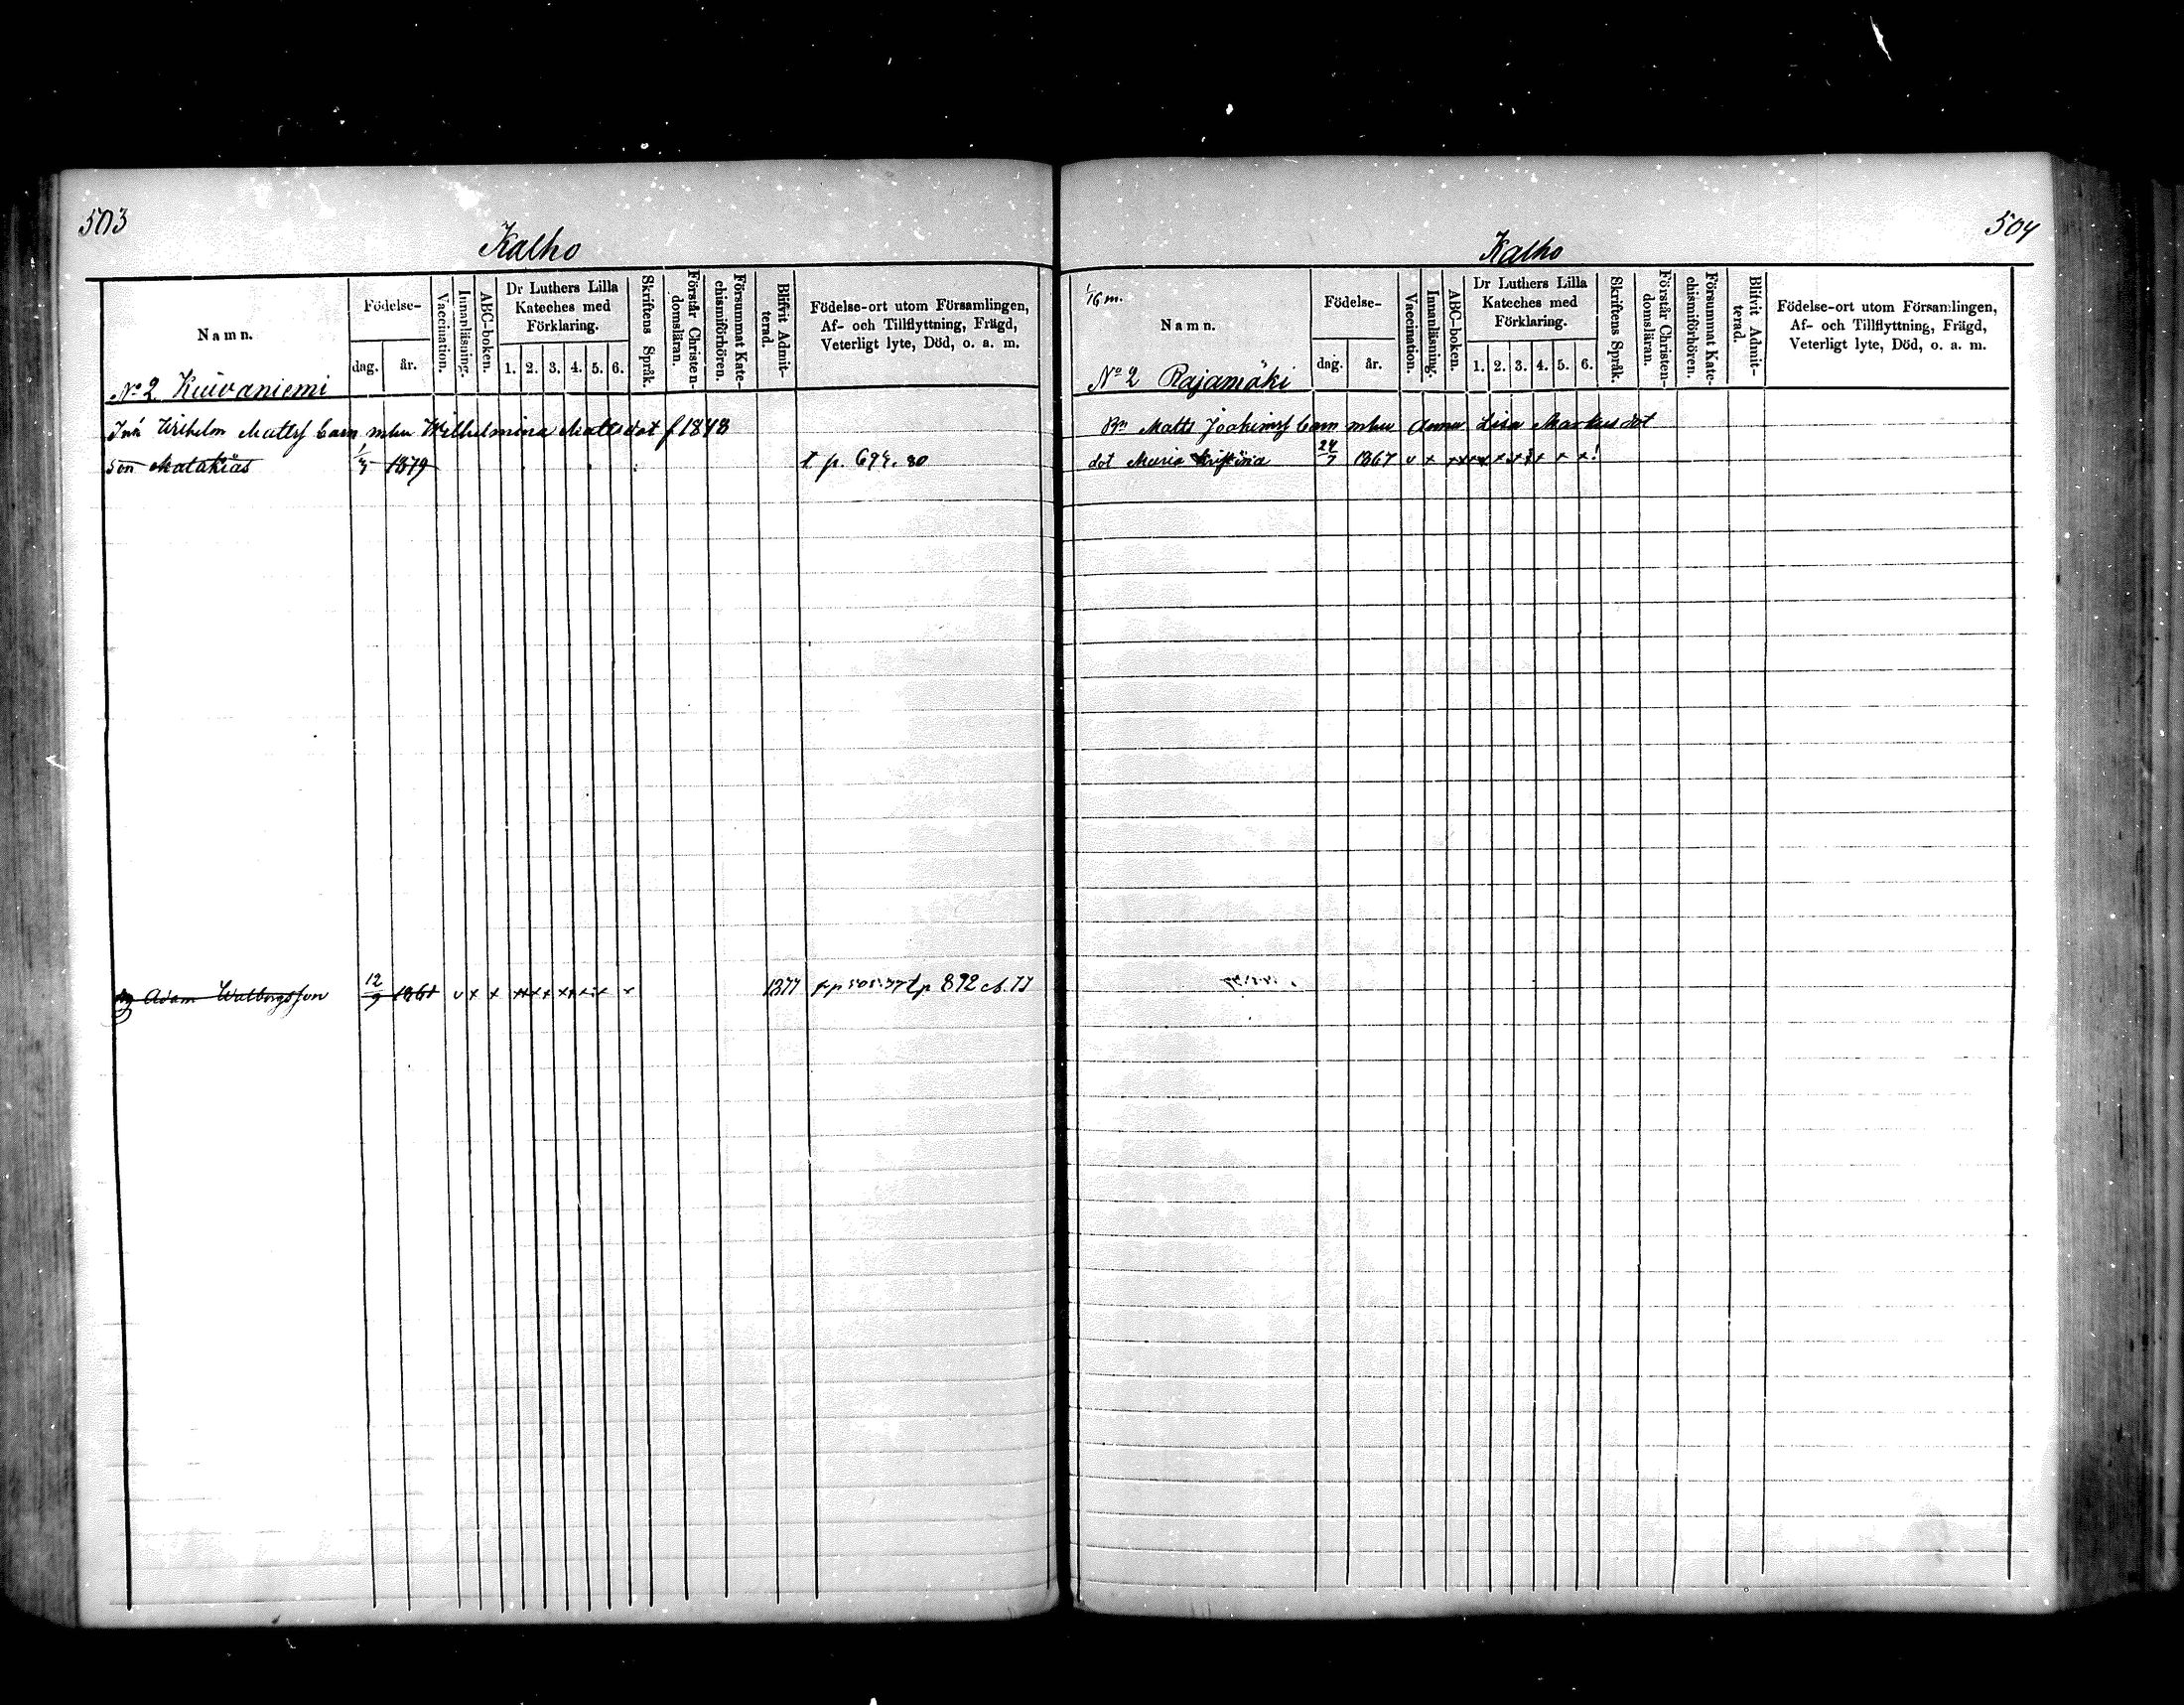 503
Kalho
Namn.
Födelse-
dag.
år.
Vaccination.
Innanläsning.
ABC-boken.
Dr Luthers Lilla
Kateches med
Förklaring.
1. 2. 3. 4. 5. 6.
Skriftens Språk.
Förstår Christen-
domsläran.
Försummat Kate-
chismiförhören.
Blifvit Admit-
terad.
Födelse-ort utom Församlingen,
Af- och Tillflyttning, Frägd,
Veterligt lyte, Död, o. a. m.
No 2 Kuivaniemi
Matts barn m hu Wilhelmina Mattsdot f 1848
son Matakias 1879 t p. 694. 80
Adam Walborgsson 12/9 1861 v x x 1877 892
504
Kalho
1/16 m.
Namn.
Födelse-
dag.
år.
Vaccination.
Innanläsning.
ABC-boken.
Dr Luthers Lilla
Kateches med
Förklaring.
1. 2. 3. 4. 5. 6.
Skriftens Språk.
Förstår Christen-
domsläran.
Försummat Kate-
chismiförhören.
Blifvit Admit-
terad.
Födelse-ort utom Församlingen,
Af- och Tillflyttning, Frägd,
Veterligt lyte, Död, o. a. m.
No 2 Rajamäki
Matts Joakimss barn m hu Anna Lisa Markusdot
dot Maria Kristina 24/7 1867 v x